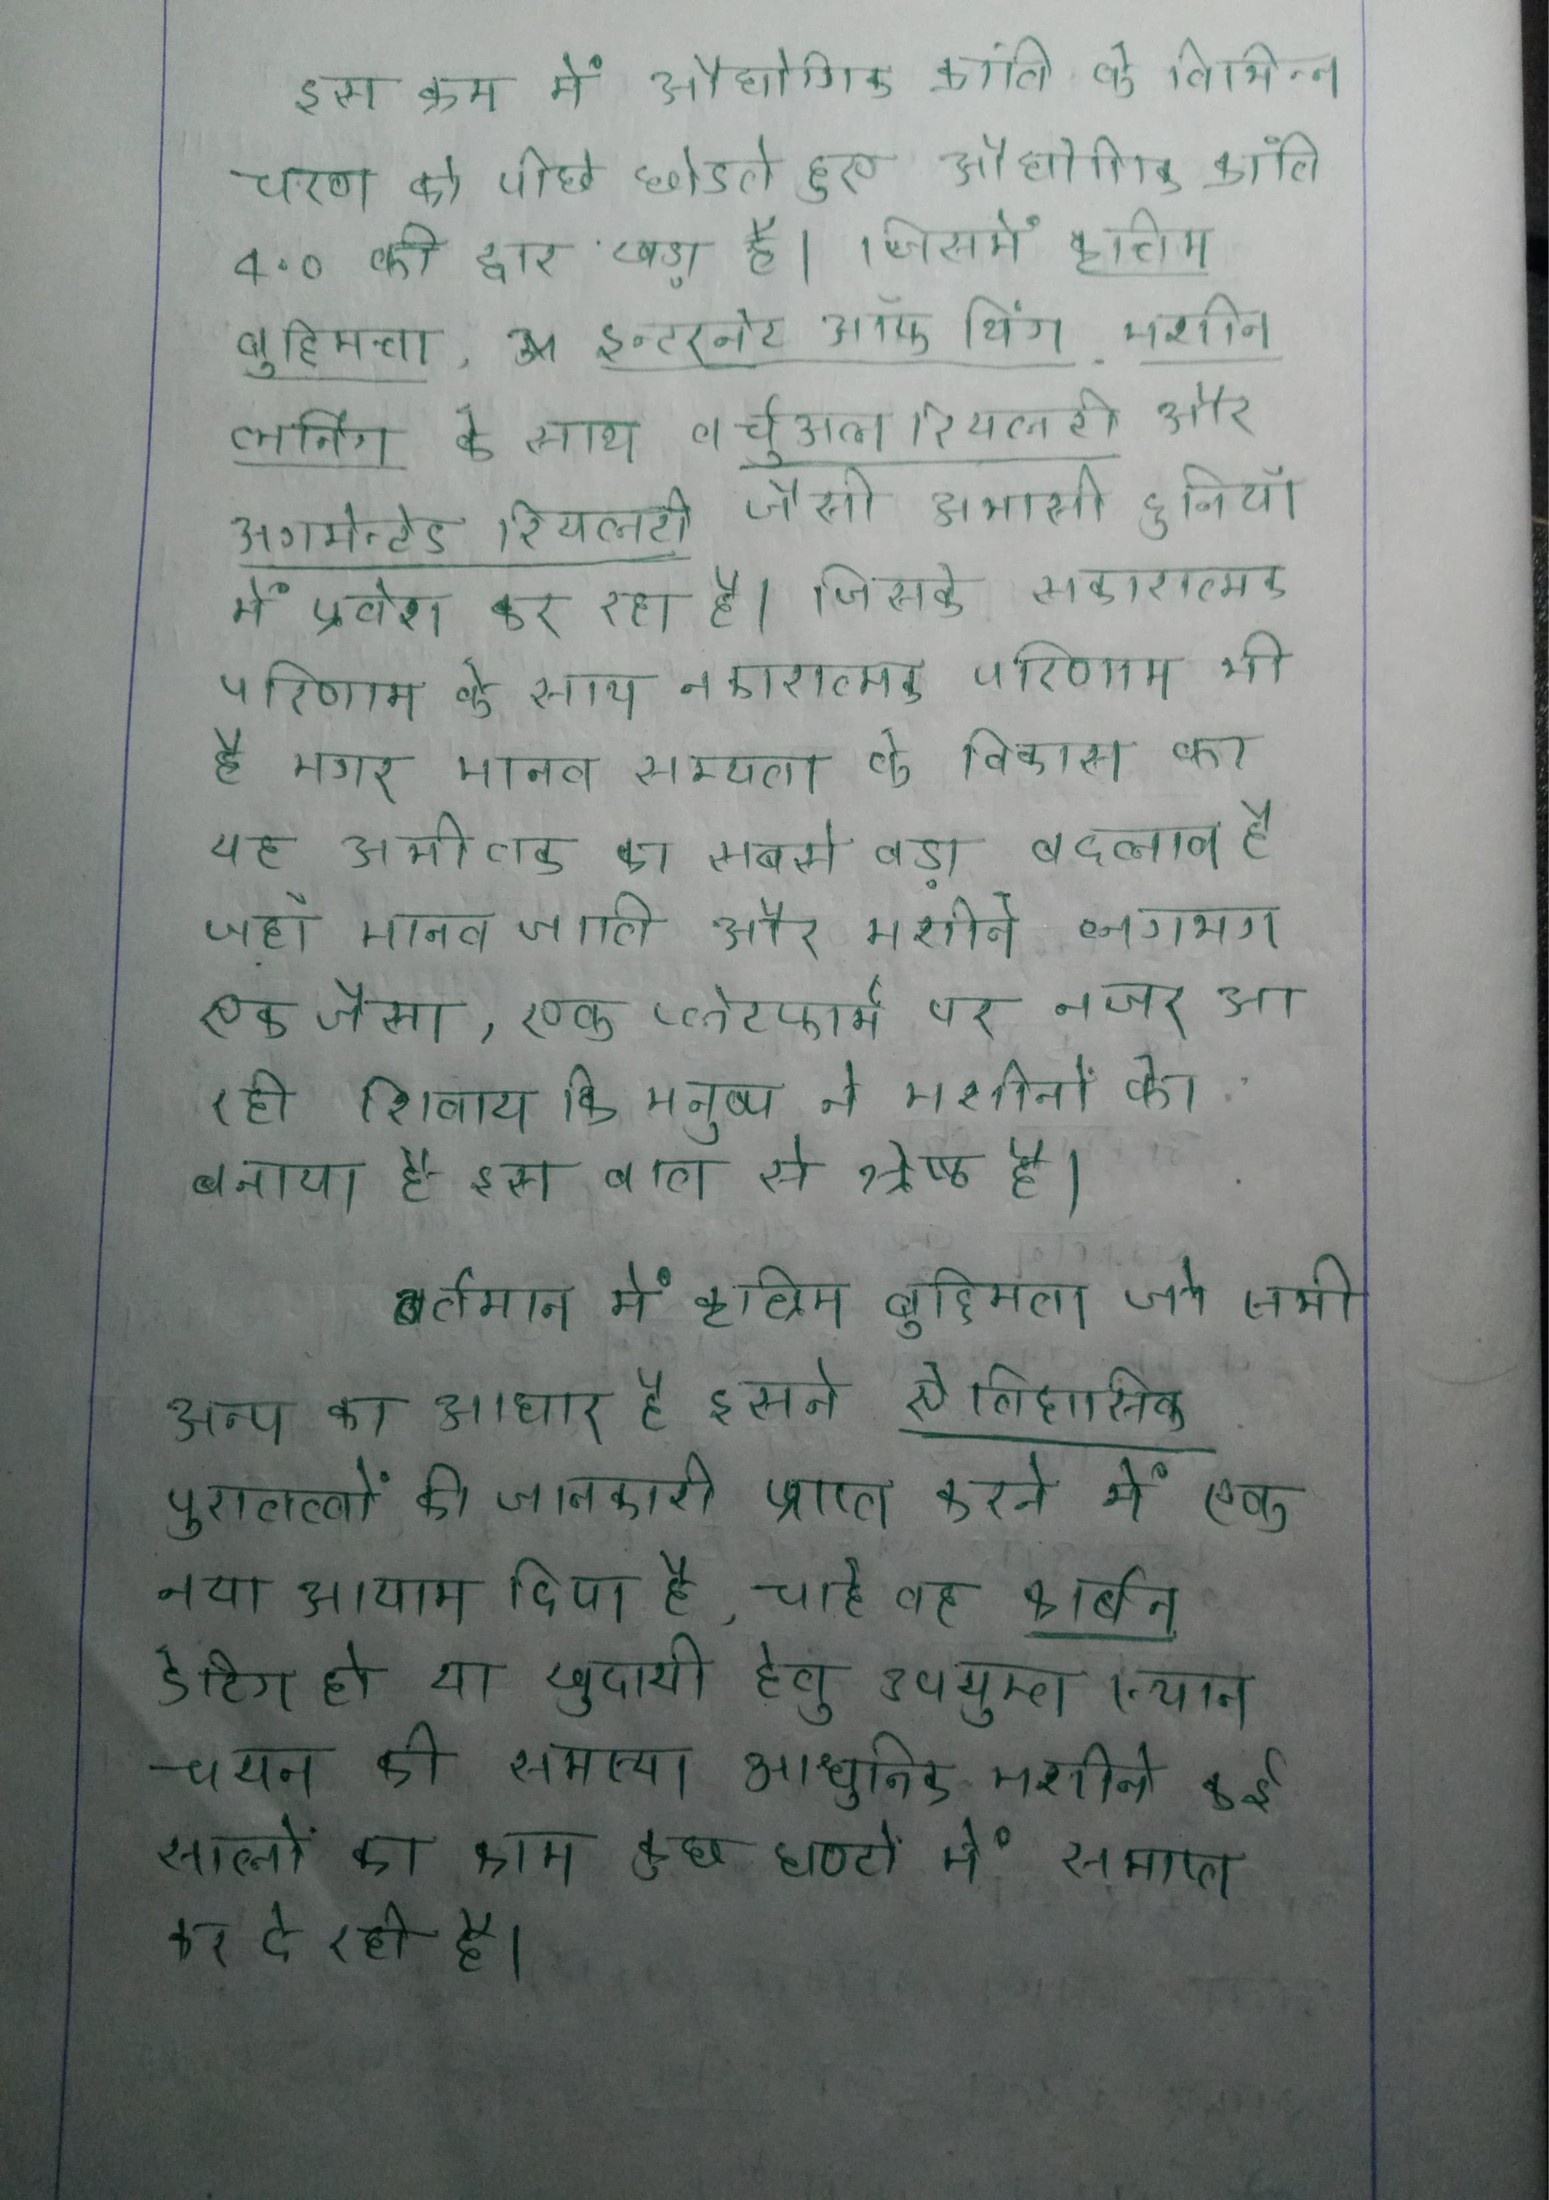 इस क्रम में औद्योगिक क्रांति के विभिन्न
चरण को पीछे छोडते हुए औद्योगिक क्रांति
4.0 की द्वार खड़ा है। जिसमें कृत्रिम
बुद्दिमत्ता, इन्टरनेट ऑफ थिंग, मशीन
लर्निंग के साथ वर्चुअल रियलटी और
अगमेन्टेड रियलटी जैसी अभासी दुनियाँ
में प्रवेश कर रहा है। जिसके सकारात्मक
परिणाम के साथ नकारात्मक परिणाम भी
है मगर मानव सभ्यता के विकास का
यह अभीतक का सबसे बड़ा बदलाव है
जहाँ मानव जाति और मशीने लगभग
एक जैसा, एक प्लेटफार्म पर नजर आ
रही शिवाय कि मनुष्य ने मशीनों को
बनाया है इस बात से श्रेष्ठ है।
वर्तमान में कृत्रिम बुद्दिमता जो सभी
अन्य का आधार है इसने ऐतिहासिक
पुरातत्वों की जानकारी प्राप्त करने में एक
नया आयाम दिया है, चाहे वह कार्बन
डेटिग हो या खुदायी हेतु उपयुक्त स्थान
चयन की समस्या आधुनिक मशीने कई
सालों का काम कुछ घण्टों में समाप्त
कर दे रही है।